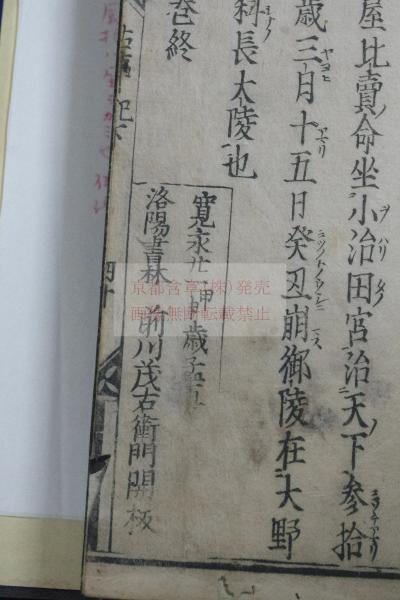 屋比賣命坐小治田宮治天下參拾
歲三月十五日癸丑崩御陵在大野
科長大陵也
卷終
寛永廿一甲申歲孟
洛陽書林 前川茂右衛門開板
四十
京都含章(株)発売
画像無断転載禁止